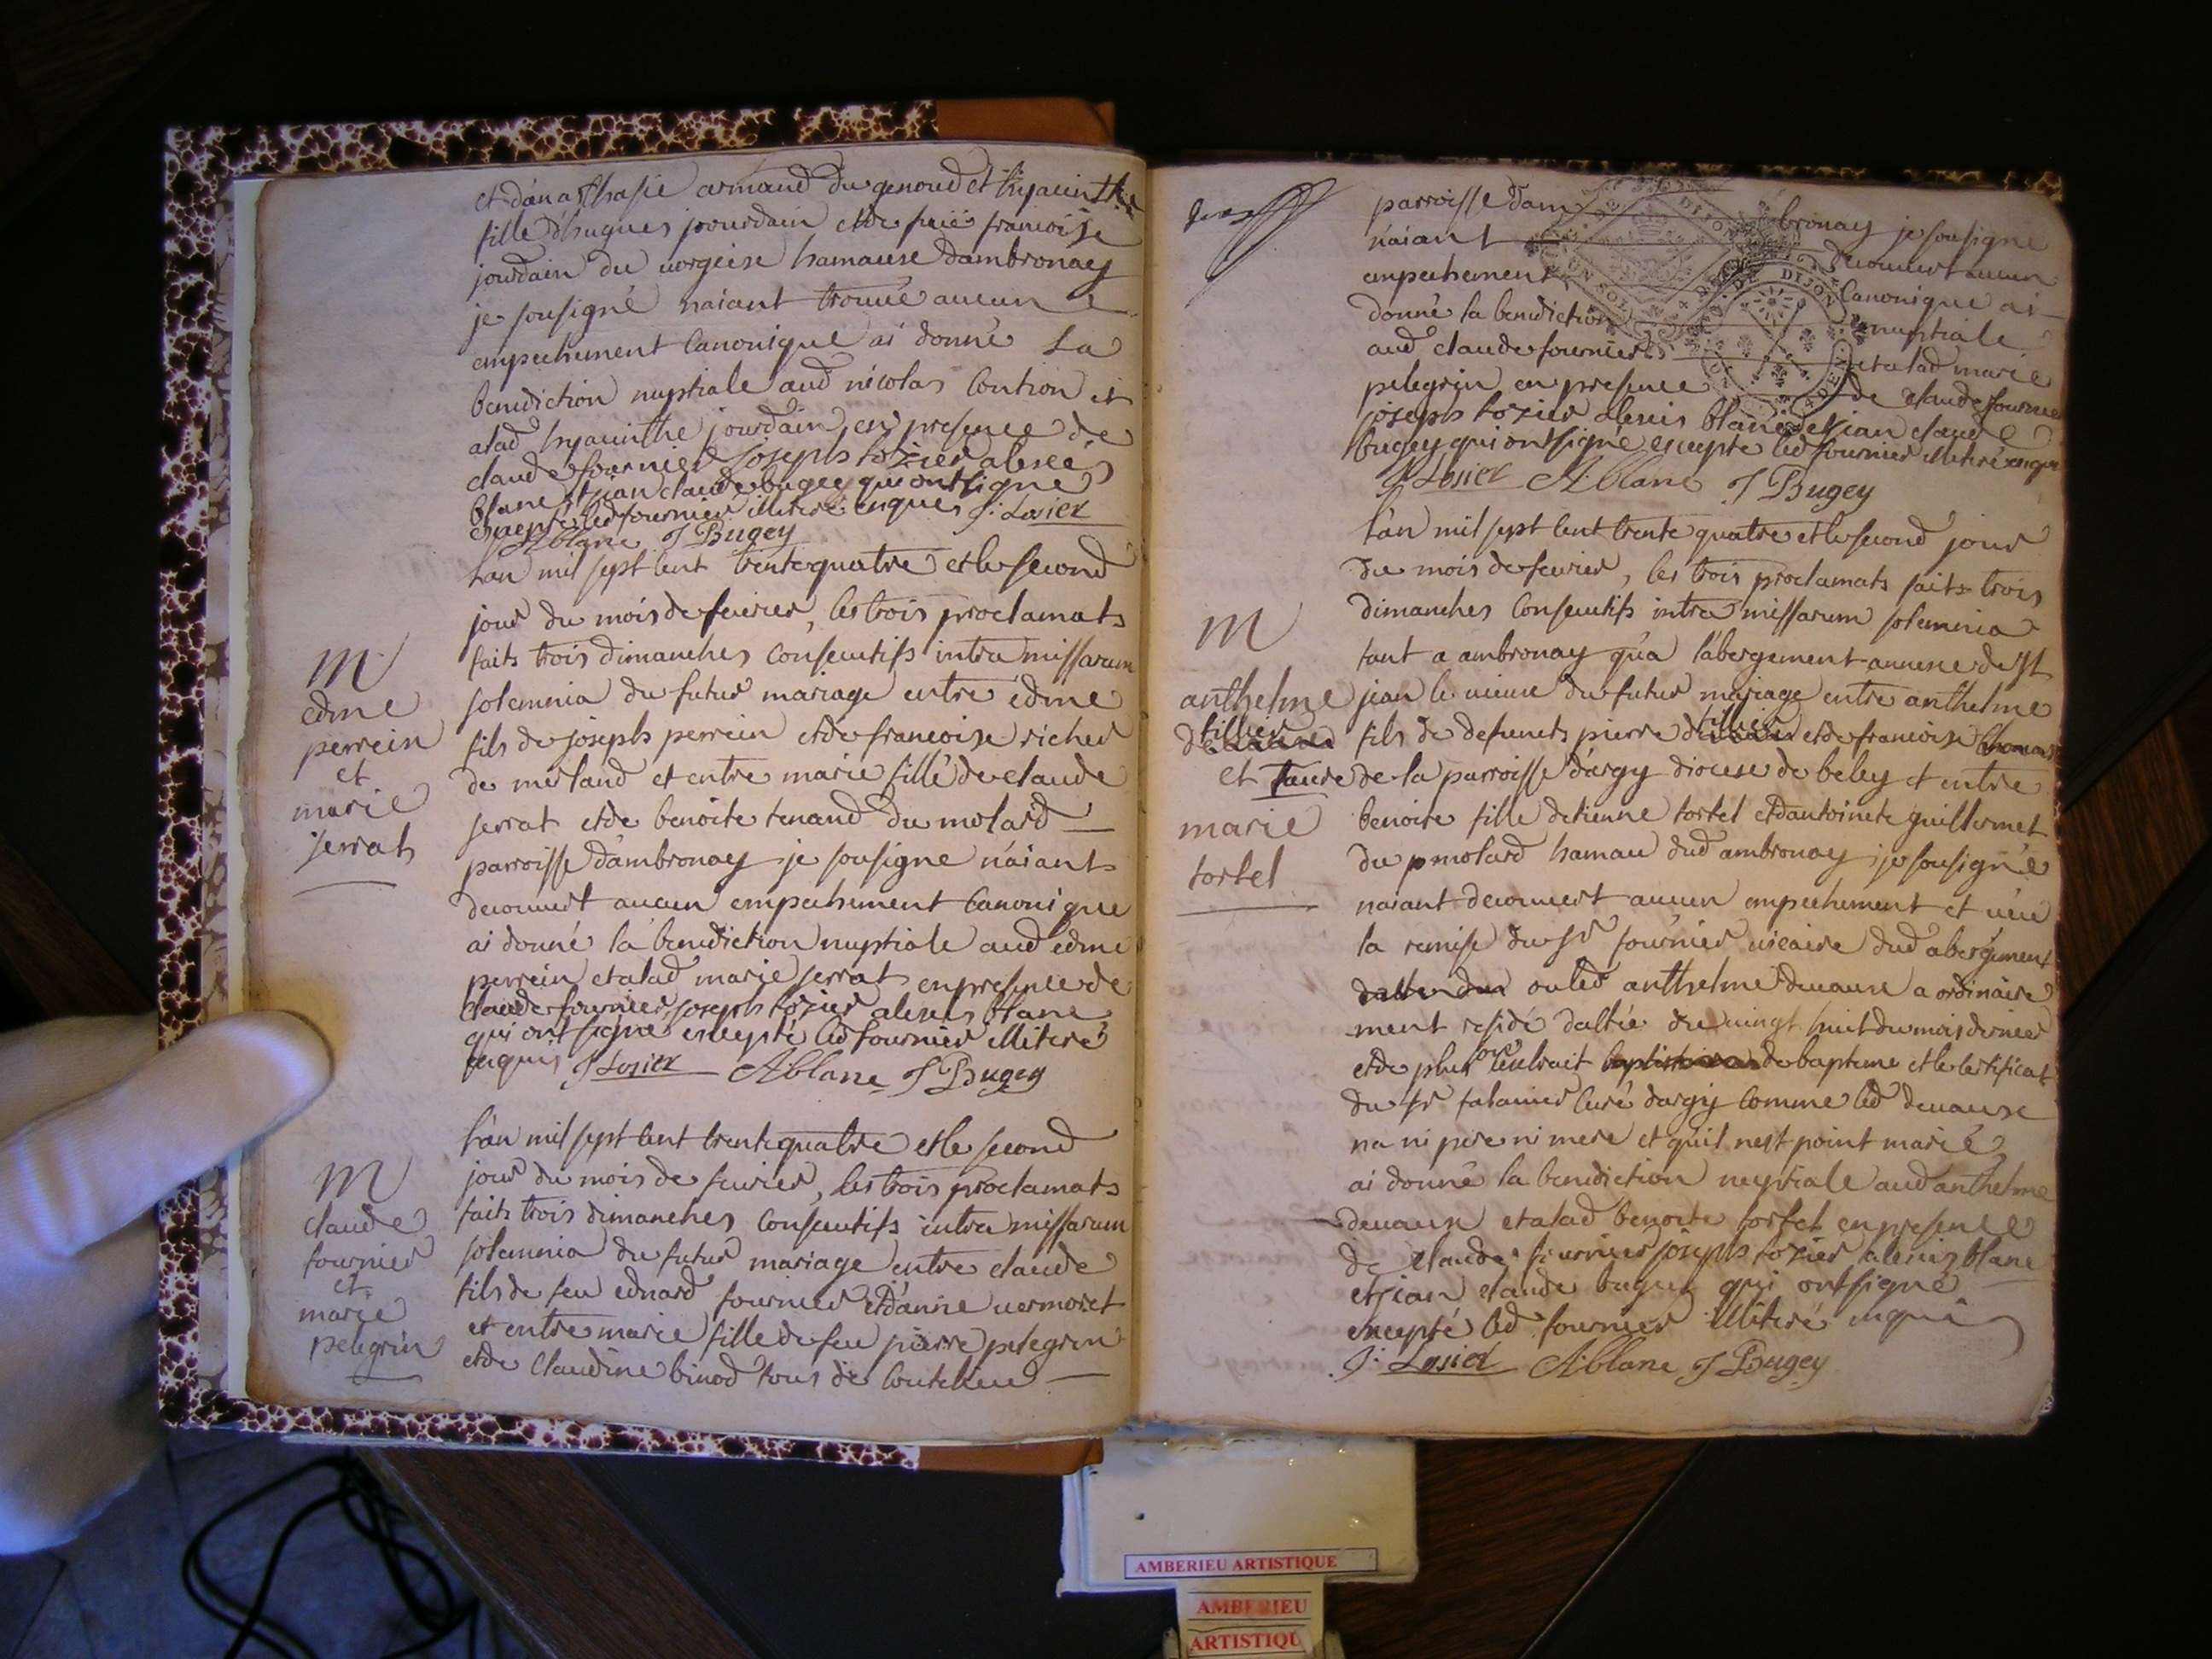 et danasthasie armand du genoud et hyacinthe
fille d'hugues jourdain et de feuë francoise
jourdain du uorgeise hamause dambronay
je sousigné naiant trouué aucun
empechement Canonique ai donné La
benediction nuptiale aud nicolas Contion et
alad hyacinthe jourdain en presence de
claude fournier joseph losier alexis
blanc et jean claude bugey qui ont signe
excepté led fournier illiteré enquis J: Losier
A blanc J Bugey
Lan mil sept cent trente quatre et le second
jour du mois de feurier, les trois proclamats
faits trois dimanches Consecutifs intra missarum
solemnia du futur mariage entre edme
fils de joseph perrein et de francoise richer
de merland et entre marie fille de claude
serrat et de benoite tenand du molard
parroisse d'ambronay je sousigne n'aiant
decouuert aucun empechement Canonique
ai donné la benediction nuptiale aud edme
perrein et alad marie serrat en presence de
Claude fournier joseph losier alexis blanc
qui ont signe excepté led fournier illiteré
enquis J Losier A blanc J Bugey
M
edme
perrein
et
marie
serrat
L'an mil sept cent trente quatre et le second
jour du mois de feurier, les trois proclamats
faits trois dimanches Consecutifs intra missarum
solemnia du futur mariage entre claude
fils de feu ednard fournier et d'anne uermoret
et entre marie fille de feu pierre pelegrin
et de Claudine binod tous de Coutelieu
M
claude
fournier
et
marie
pelegrin
parroisse dam bronay je sousigne
n'aiant decouuert aucun
empechement Canonique ai
donné la benediction nuptiale
aud claude fournier et alad marie
pelegrin en presence de claude fournier
joseph losier alexis blanc et jean claude
bugey qui ont signé excepte led fournier illiteré enquis
J Losier A blanc J Bugey
L'an mil sept cent trente quatre et le second jour
du mois de feurier, les trois proclamats faits trois
dimanches Consecutifs intra missarum solemnia
tant a ambronay qu'a l'abergement annexe de st
jean le uieux du futur mariage entre anthelme
fils de defunts pierre detillier et de francoise thomas
de la parroisse d'argy diocese de beley et entre
benoite fille detienne tortel et dantoinete guillermet
du molard hamau dud ambronay; je sousigné
naiant decouuert aucun empechement et uëu
la remise du sr fournier uicaire dud abergement
ou led anthelme deuaux a ordinaire
ment residé datée du uingt huit du mois dernier
et de plus l'extrait de bapteme et le certificat
du sr Curé dargy Comme led deuaux
na ni pere ni mere et quil nest point marié
ai donné la benediction nuptiale aud anthelme
deuaux et alad benoite tortel en presence
de claude fournier joseph losier alexis blanc
et jean claude bugey qui ont signé
excepté led fournier illiteré enquis
J: Losier A blanc J Bugey
M
anthelme
detillier
et
marie
tortel
DIJON
UN SOL
DE DIJON
AMBERIEU ARTISTIQUE
AMBERIEU
ARTISTIQU